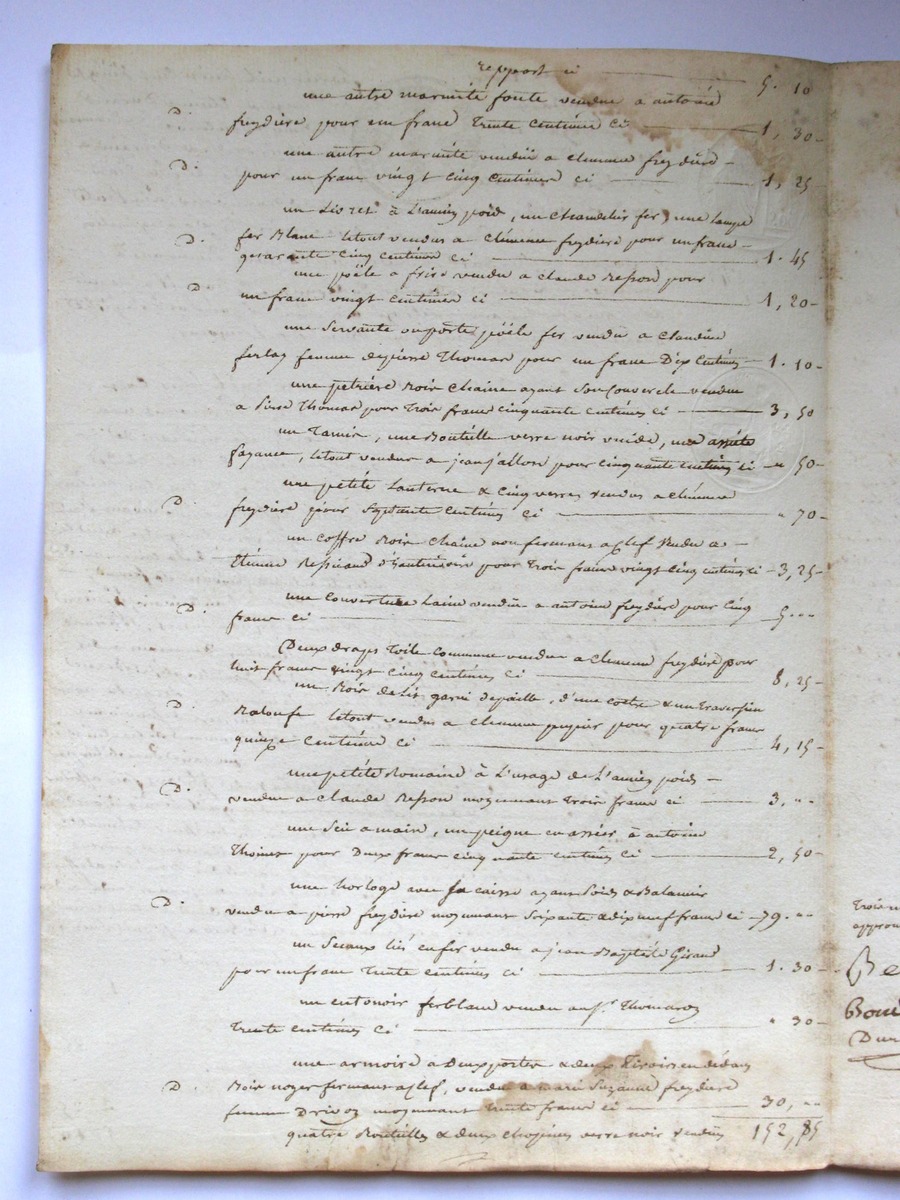 report ci 5. 10
une autre marmite fonte vendue a antoine
D. freydiere pour un franc trente centimes ci 1, 30
une autre marmite vendue a clemence freydiere
D. pour un franc vingt cinq centimes ci 1, 25
un Livret à L'ancien poid, un chandelier fer, une lampe
D. fer Blanc letout vendus a clémence freydiere pour un franc
quarante cinq centimes ci 1. 45
une poële a frire vendue a claude Resson pour
D. un franc vingt centimes ci 1, 20
une servante ou porte poële fer vendue a claudine
ferlay femme depierre Thomas pour un franc Dix centimes 1. 10
une petriere Bois chaine ayant son Couvercle vendue
a pierre Thomas pour Trois francs cinquante centimes ci 3, 50
un Tamis, une Bouteille verre noir vuide, une assiete
fayance, letout vendus a jean jallon pour cinquante centimes ci " 50
une petite Lanterne & cinq verres vendus a clémence
D. freydiere pour Septante centimes ci " 70
un coffre Bois chaine non fermant a clef vendu a
Etienne pour trois francs vingt cinq centimes ci 3, 25
une couverture Laine vendue a antoine freydiere pour cinq
D. francs ci 5 ""
Deux draps Toile commune vendus a clemence freydiere pour
huit francs vingt cinq centimes ci 8, 25
un Bois de lit garni depaille, d'une & un traversin
D. Baloufe letout vendus a clemence pour quatre francs
quinze centimes ci 4, 15
une petite Romaine à L'usage de L'ancien poids
D. vendue a claude Resson moyennant trois francs ci 3, ""
une Scie a main, un peigne en assier à antoine
Thoinet pour Deux francs cinquante centimes ci 2, 50
une horloge avec Sa caisse ayant Poids & Balancier
D. vendue a pierre freydiere moyennant Soixante & dix neuf francs ci 79. ""
un Seaux liés enfer vendu a jean Baptiste Giraud
pour un franc trente centimes ci 1. 30
un entonoir ferblanc vendu a
trente centimes ci " 30
une armoire a Deux portes & deux Tiroirs en dedans
D. Bois noyer fermant a clef, vendue a marie Suzanne freydiere
femme Drivon moyennant trente francs ci 30, ""
152, 85
quatre Bouteilles & deux chopines verre noir vendues
Trois
approu
Be
Dur